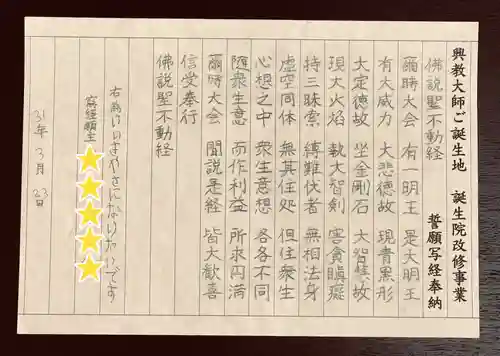 興教大師ご誕生地 誕生院改修事業
誓願写経奉納
佛説聖不動経
爾時大会 有一明王 是大明王
有大威力 大悲徳故 現青黒形
大定徳故 坐金剛石 大智慧故
現大火焔 執大智剣 害貪瞋癡
持三昧索 縛難伏者 無相法身
虚空同体 無其住処 但住衆生
心想之中 衆生意想 各各不同
随衆生意 而作利益 所求円満
爾時大会 聞説是経 皆大歓喜
信受奉行
佛説聖不動経
右為 いしゃさんになりたいです
写経願主
31年3月23日